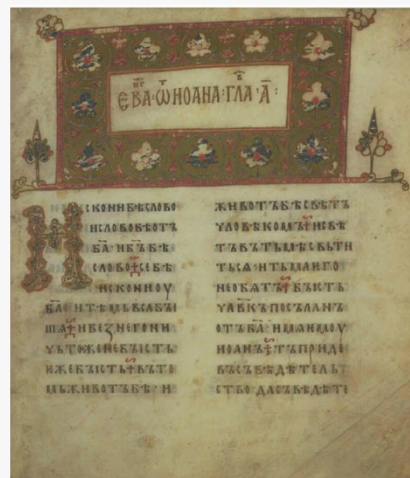 ЕВА҃ · Ѿ ИОАНА · ГЛА҃ · А҃ :
ИСКОНИ БѢ СЛОВО
И СЛОВО БѢ ОТЪ
БА҃ И БЪ҃ БѢ
СЛОВО СЕ БѢ
ИСКОНИ ОУ
БА҃ И ТѢМЬ ВЬСА БЫ
ША И БЕЗ НЕГО НИ
ЧЬТОЖЕ НЕ БЫСТЬ
ѤЖЕ БЫСТЬ ВЪ ТО
МЬ ЖИВОТЪ БѢ · И
ЖИВОТЪ БѢ СВѢТЪ
ЧЛОВѢКОМЪ И СВѢ
ТЪ ВЪ ТЬМѢ СВЬТИ
ТЬСѦ И ТЬМА ѤГО
НЕ ОБѦТЪ БЫСТЬ
ЧЛ҃ВКЪ ПОСЪЛАНЪ
ОТЪ БА҃ ИМѦ ѤМОУ
ИОАНЪ ТЪ ПРИДЕ
ВЪ СЪВѢДѢТЕЛЬ
СТВО ДА СЪВѢДѢТЕ